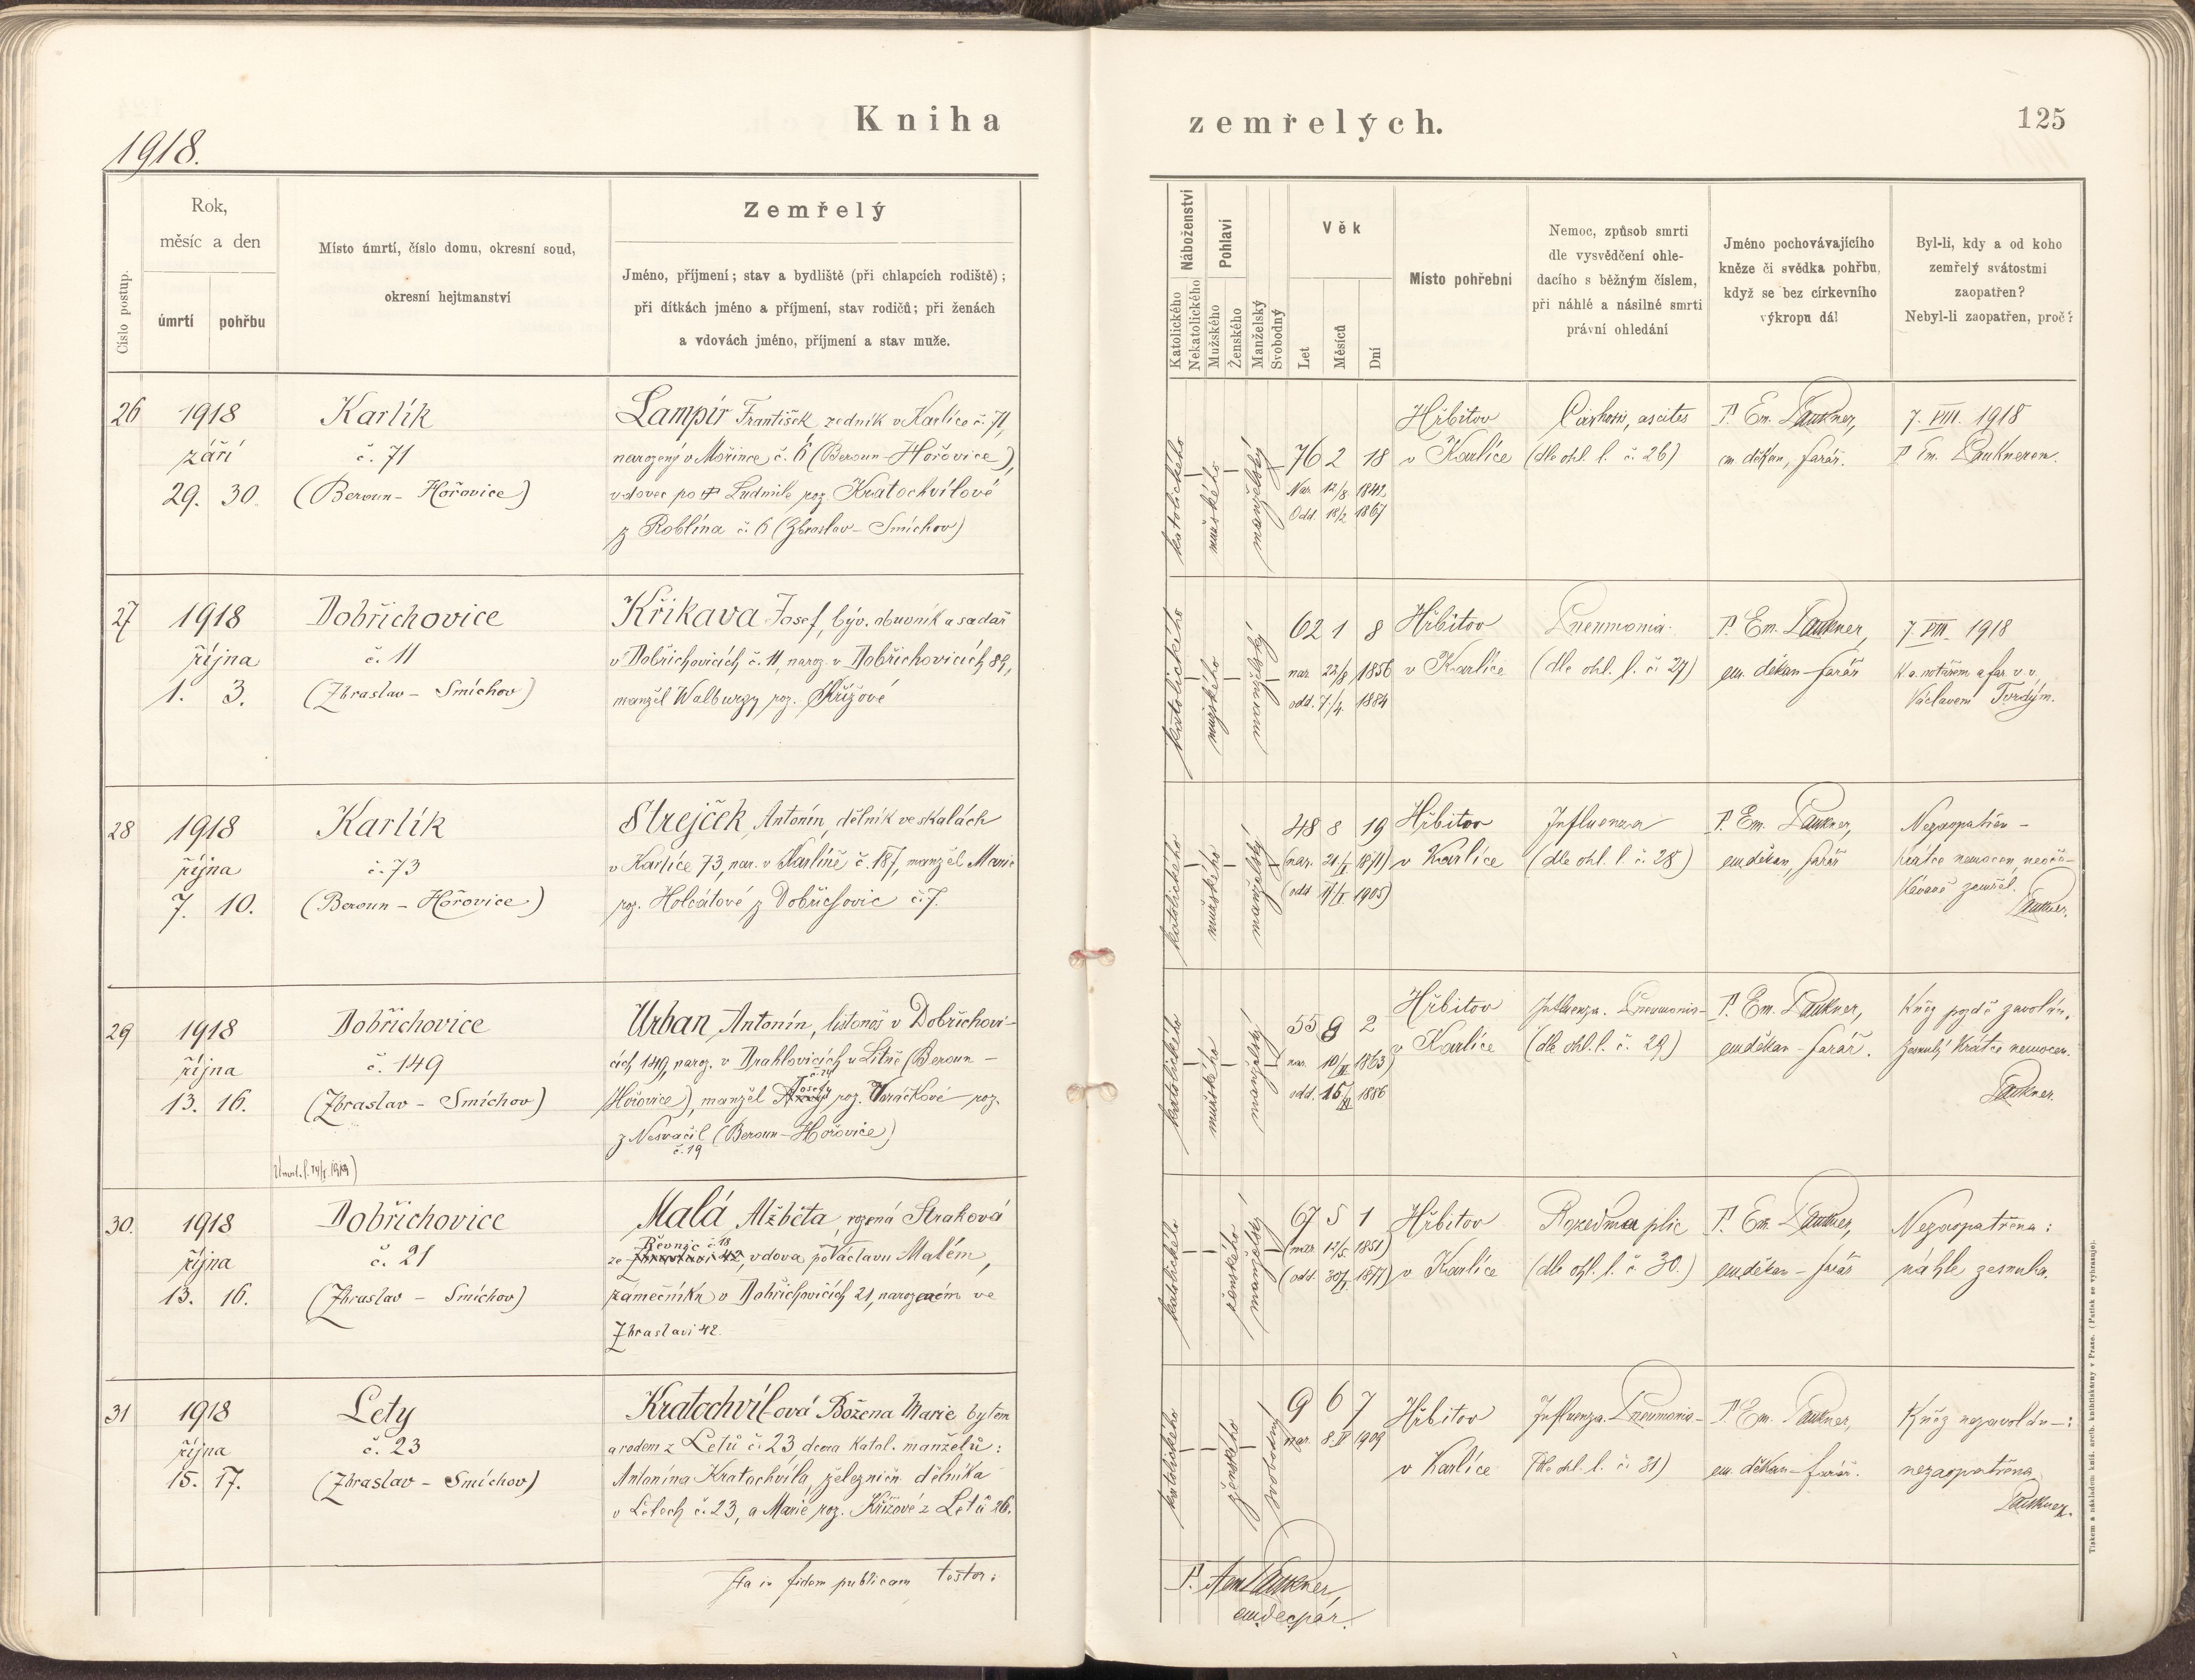 Kniha
zemřelých.
125
1918.
Číslo postup.
Rok,
měsíc a den
úmrtí
pohřbu
Místo úmrtí, číslo domu, okresní soud,
okresní hejtmanství
Zemřelý
Jméno, příjmení; stav a bydliště (při chlapcích rodiště);
při dítkách jméno a příjmení, stav rodičů; při ženách
a vdovách jméno, příjmení a stav muže.
Náboženství
Katolického
Nekatolického
Pohlaví
Mužského
Ženského
Manželský
Svobodný
Věk
Let
Měsíců
Dní
Místo pohřební
Nemoc, způsob smrti
dle vysvědčení ohle-
dacího s běžným číslem,
při náhlé a násilné smrti
právní ohledání
Jméno pochovávajícího
kněze či svědka pohřbu,
když se bez církevního
výkropu dál
Byl-li, kdy a od koho
zemřelý svátostmi
zaopatřen?
Nebyl-li zaopatřen, proč?
26
1918
září
29. 30.
Karlík
č. 71
(Beroun - Hořovice)
Lampír František zedník v Karlíce č. 71,
narozený v Mořince č. 6 (Beroun - Hořovice),
vdovec po Ludmile roz. Kratochvílové
z Roblína č. 6 (Zbraslav - Smíchov)
katolického
mužského
manželský
76 2 18
Nar. 12/8 1842
Odd. 18/2 1867
Hřbitov
v Karlíce
Cirhosis, ascites
(dle ohl. l. č. 26)
P. Em. Paukner,
em. děkan, farář.
7. VIII. 1918
P. Em. Pauknerem.
27
1918
října
1. 3.
Dobřichovice
č. 11
(Zbraslav - Smíchov)
Křikava Josef, býv. obuvník a sadař
v Dobřichovicích č. 11, naroz. v Dobřichovicích 89,
manžel Walburgy roz. Křížové
katolického
mužského
manželský
62 1 8
nar. 22/8 1856
odd. 7./4. 1884
Hřbitov
v Karlíce
Pneumonia.
(dle ohl. l. č. 27)
P. Em. Paukner,
em. děkan - farář
7. VIII. 1918
K. a. notářem a far. v. v.
Václavem Tvrdým.
28
1918
října
7. 10.
Karlík
č. 73
(Beroun - Hořovice)
Strejček Antonín, dělník ve skalách
v Karlíce 73, nar. v Karlíně č. 187, manžel Marie
roz. Holcátové z Dobřichovic č. 7.
katolického
mužského
manželský
48 8 19
(nar. 21./I. 1871)
(odd. 1905)
Hřbitov
v Karlíce
Influenza
(dle ohl. l. č. 28)
P. Em. Paukner,
em. děkan, farář
Nezaopatřen -
krátce nemocen neoče-
kávaně zemřel.
Paukner.
29
1918
října
13. 16.
Dobřichovice
č. 149
(Zbraslav - Smíchov)
Urban Antonín, listonoš v Dobřichovi-
cích 149, naroz. v Drahlovicích u Litně (Beroun -
Josefy
Hořovice), manžel roz. roz.
z Nesvačil (Beroun - Hořovice)
č. 19
katolického
mužského
manželský
55 8 2
nar. 1863)
odd. 15 1886
Hřbitov
v Karlíce
Influenza. Pneumonia -
(dle ohl. l. č. 29)
P. Em. Paukner,
em. děkan - farář.
Kněz pozdě zavolán.
Zesnulý krátce nemocen.
Paukner.
30.
1918
října
13. 16.
Dobřichovice
č. 21
(Zbraslav - Smíchov)
Malá Alžběta, rozená Straková
Řevnic č. 18
ze Zbraslavi 42, vdova po Václavu Malém,
zámečníku v Dobřichovicích 21, narozeném ve
Zbraslavi 42.
katolického
ženského
manželský
67 5 1
(nar. 12/5. 1851)
(odd. 30/ 1877)
Hřbitov
v Karlíce
Rozedma plic
(dle ohl. l. č. 30.)
P. Em. Paukner,
em. děkan - farář
Nezaopatřena:
náhle zesnula.
31
1918
října
15. 17.
Lety
č. 23
(Zbraslav - Smíchov)
Kratochvílová Božena Marie, bytem
a rodem z Letů č. 23 dcera katol. manželů:
Antonína Kratochvíla, železničn. dělníka
v Letech č. 23, a Marie roz. Křížové z Letů 26.
katolického
ženského
svobodný
9 6 7
nar. 8. IV 1909
Hřbitov
v Karlíce
Influenza. Pneumonia -
(dle ohl. l. č. 31)
P. Em. Paukner,
em. děkan - farář.
Kněz nezavolán -:
nezaopatřena.
Paukner.
Ita in fidem publicam testor:
P. Em Paukner,
Tiskem a nákladem knížecí arcib. knihtiskárny v Praze. (Patisk se vyhrazuje).